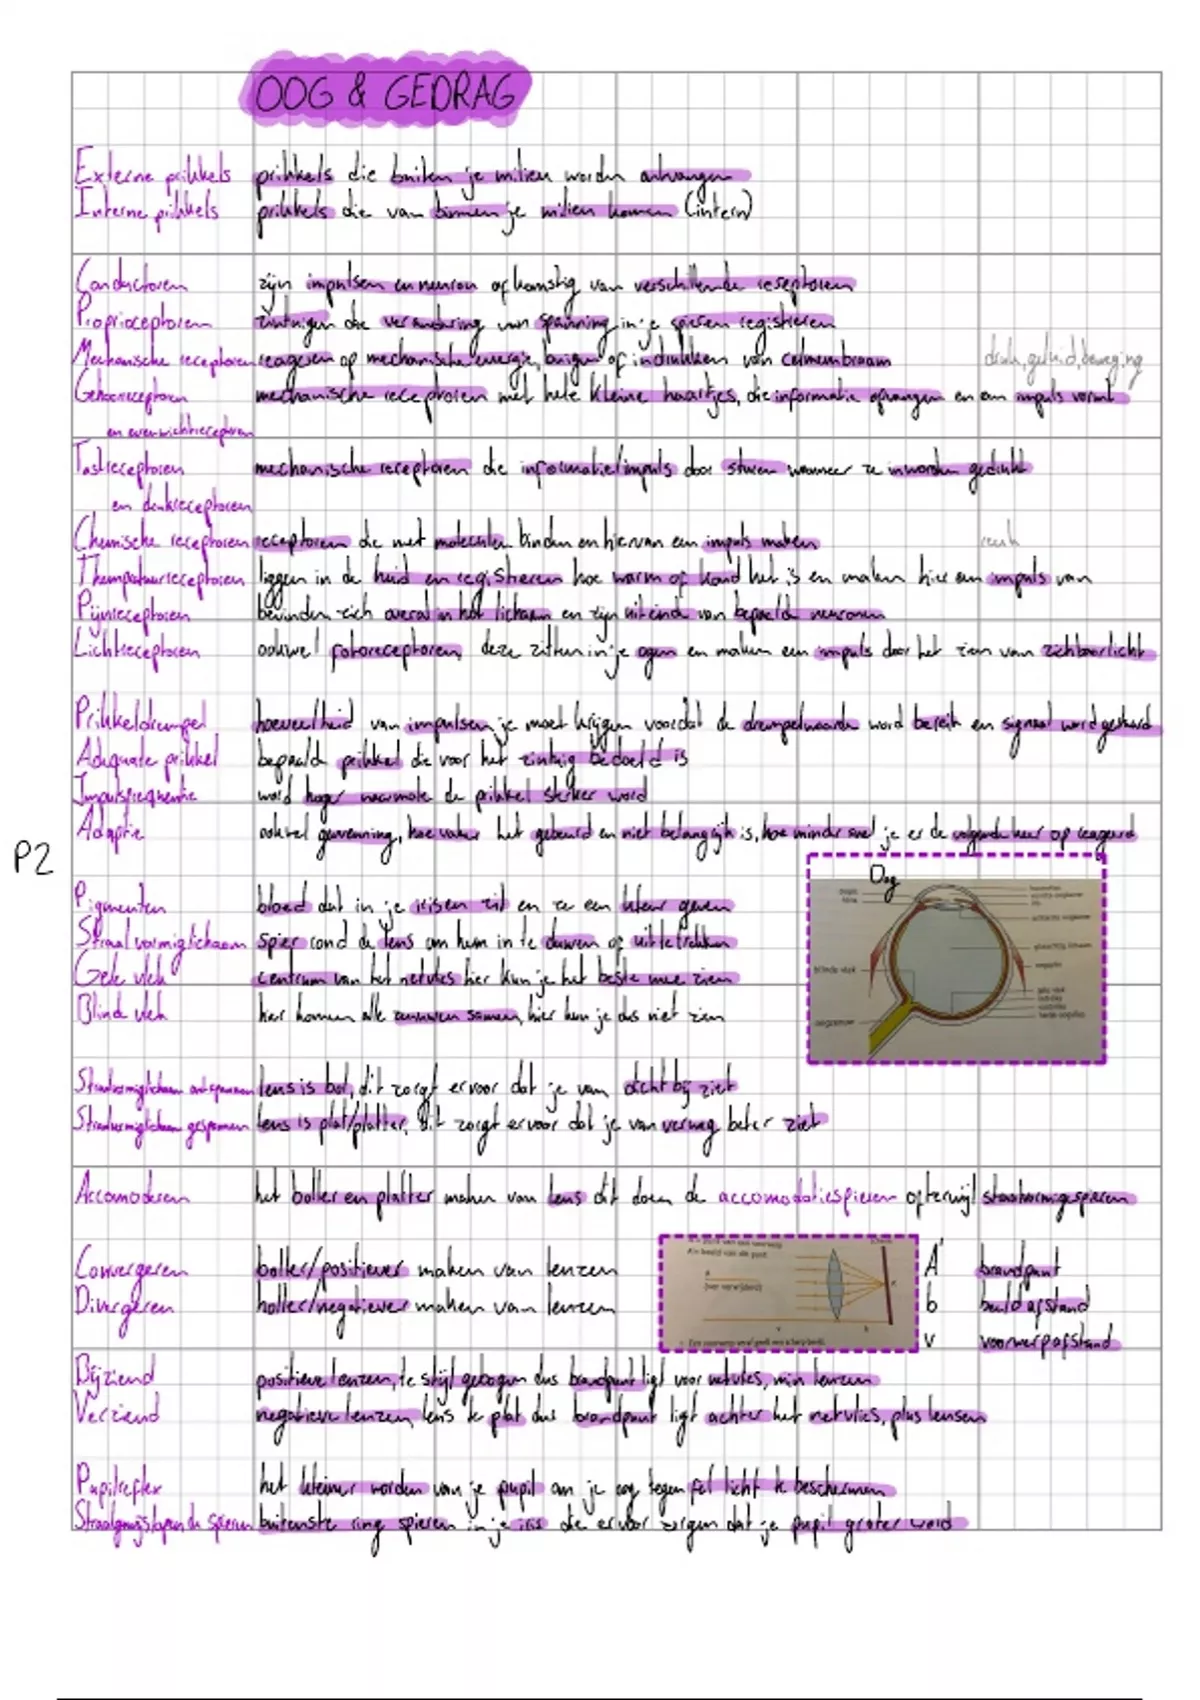 OOG & GEDRAG
Externe prikkels prikkels die buiten je milieu worden ontvangen
Interne prikkels prikkels die van binnen je milieu komen (intern)
Conductoren zijn impulsen en neuron afkomstig van verschillende receptoren
Proprioceptoren zintuigen die verandering van spanning in je spieren registreren
Mechanische receptoren reageren op mechanische energie, buigen of indrukken van celmembraam druk, geluid, beweging
Gehoorreceptoren mechanische receptoren met hele kleine haartjes, die informatie opvangen en een impuls vormt
en evenwichtreceptoren
Tastreceptoren mechanische receptoren die informatie/impuls door sturen wanneer ze in worden gedrukt
en drukreceptoren
Chemische receptoren receptoren die met moleculen binden en hiervan een impuls maken reuk
Themperatuurreceptoren liggen in de huid en registreren hoe warm of koud het is en maken hier een impuls van
Pijnreceptoren bevinden zich overal in het lichaam en zijn uiteinde van bepaalde neuronen
Lichtreceptoren ookwel fotoreceptoren, deze zitten in je ogen en maken een impuls door het zien van zichtbaar licht
Prikkeldrempel hoeveelheid van impulsen je moet krijgen voordat de drempelwaarde word bereik en signaal word gestuurd
Adequate prikkel bepaalde prikkel die voor het zintuig bedoeld is
Impulsfrequentie word hoger naarmate de prikkel sterker word
Adaptie ookwel gewenning, hoe vaker het gebeurd en niet belangrijk is, hoe minder snel je er de volgende keer op reageerd
P2
Oog
blinde vlek
gele vlek
oogzenuw
Pigmenten bloed dat in je irisen zit en ze een kleur geven
Straalvormiglichaam spier rond de lens om hem in te duwen of uit te trekken
Gele vlek centrum van het netvlies hier kun je het beste mee zien
Blinde vlek hier komen alle zenuwen samen, hier kun je dus niet zien
Straalvormiglichaam ontspannen lens is bol, dit zorgt ervoor dat je van dichtbij ziet
Straalvormiglichaam gespannen lens is plat/platter, dit zorgt ervoor dat je van verweg beter ziet
Accomoderen het boller en platter maken van lens dit doen de accomodatiespieren ofterwijl straalvormigespieren
Convergeren boller/positiever maken van lenzen
Divergeren holler/negatiever maken van lenzen
A' brandpunt
b beeldafstand
v voorwerpafstand
Bijziend positieve lenzen, te stijl gebogen dus brandpunt ligt voor netvlies, min lenzen
Verziend negatieve lenzen, lens te plat dus brandpunt ligt achter het netvlies, plus lensen
Pupilreflex het kleiner worden van je pupil om je oog tegen fel licht te beschermen
Straalgewijslopende spieren buitenste ring spieren in je iris die ervoor zorgen dat je pupil groter word